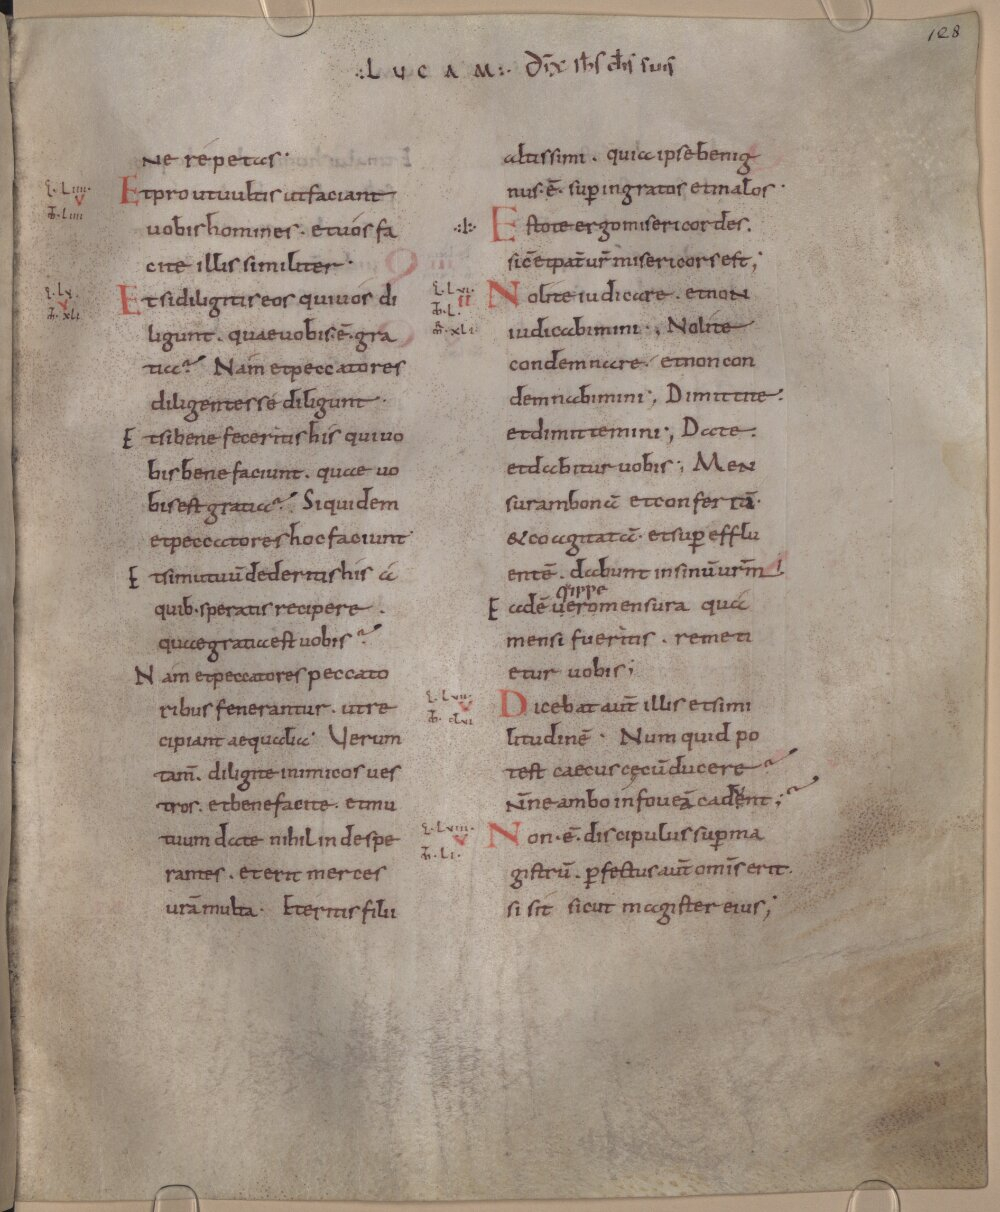 128
:LUCAM: Dix ih̄s dīs suis
ne repetas·
L. Liiii·
V
M̄·Liiii
Et prout vultis ut faciant
uobis homines· et uos fa
cite illis similiter·
L. Lv.
V
M̄· xLi
Et si diligitis eos qui uos di
ligunt. quae uobis·ē·gra
tia? Nam et peccatores
diligentes se diligunt·
Et si bene feceritis his qui uo
bis bene faciunt. quae uo
bis est gratia? Si quidem
et peccatores hoc faciunt·
Et si mutuū dederitis his a
quib· speratis recipere.
quae gratia est uobis?
Nam et peccatores peccato
ribus fenerantur. ut re
cipiant aequalia· Verum
tam̄. diligite inimicos ues
tros. et benefacite. et mu
tuum date nihil inde spe
rantes. et erit merces
urā multa· Et eritis filii
altissimi. quia ipse benig
nus·ē· sup̄ ingratos et malos·
Estote ergo misericordes.
sic̄ et pat̄ ur̄ misericors est;
L. Lvi·
II
M̄·L·
M̄· xLi
Nolite iudicare. et non
iudicabimini·, Nolite
condemnare· et non con
demnabimini·, Dimittite·
et dimittemini·, Date·
et dabitur uobis; Men
suram bonā et confertā·
& coagitatā· et sup̄ efflu
entē. dabunt in sinū ur̄m
quippe
Eadē uero mensura quā
mensi fueritis. remeti
etur uobis;
L. Lvii·
V
M̄· cLvi
Dicebat aut̄ illis et simi
litudinē· Numquid po
test caecus cęcū ducere?
Nn̄e ambo in foueā cadent;
L. Lviii·
V
M̄· Li·
Non·ē·discipulus sup̄ ma
gistrū. p̄fectus aut̄ om̄is erit.
si sit sicut magister eius;